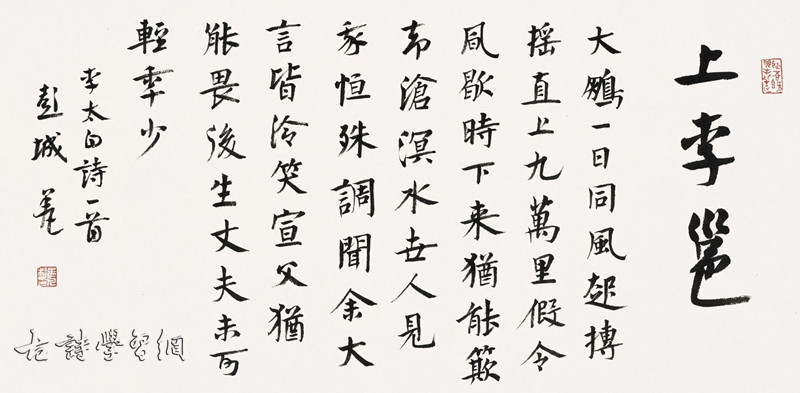 上李邕
大鵬一日同風起搏
摇直上九萬里假令
風歇時下来猶能簸
却滄溟水世人見
我恒殊調聞余大
言皆冷笑宣父猶
能畏後生丈夫未可
輕年少
李太白詩一首
彭城
古詩學習網